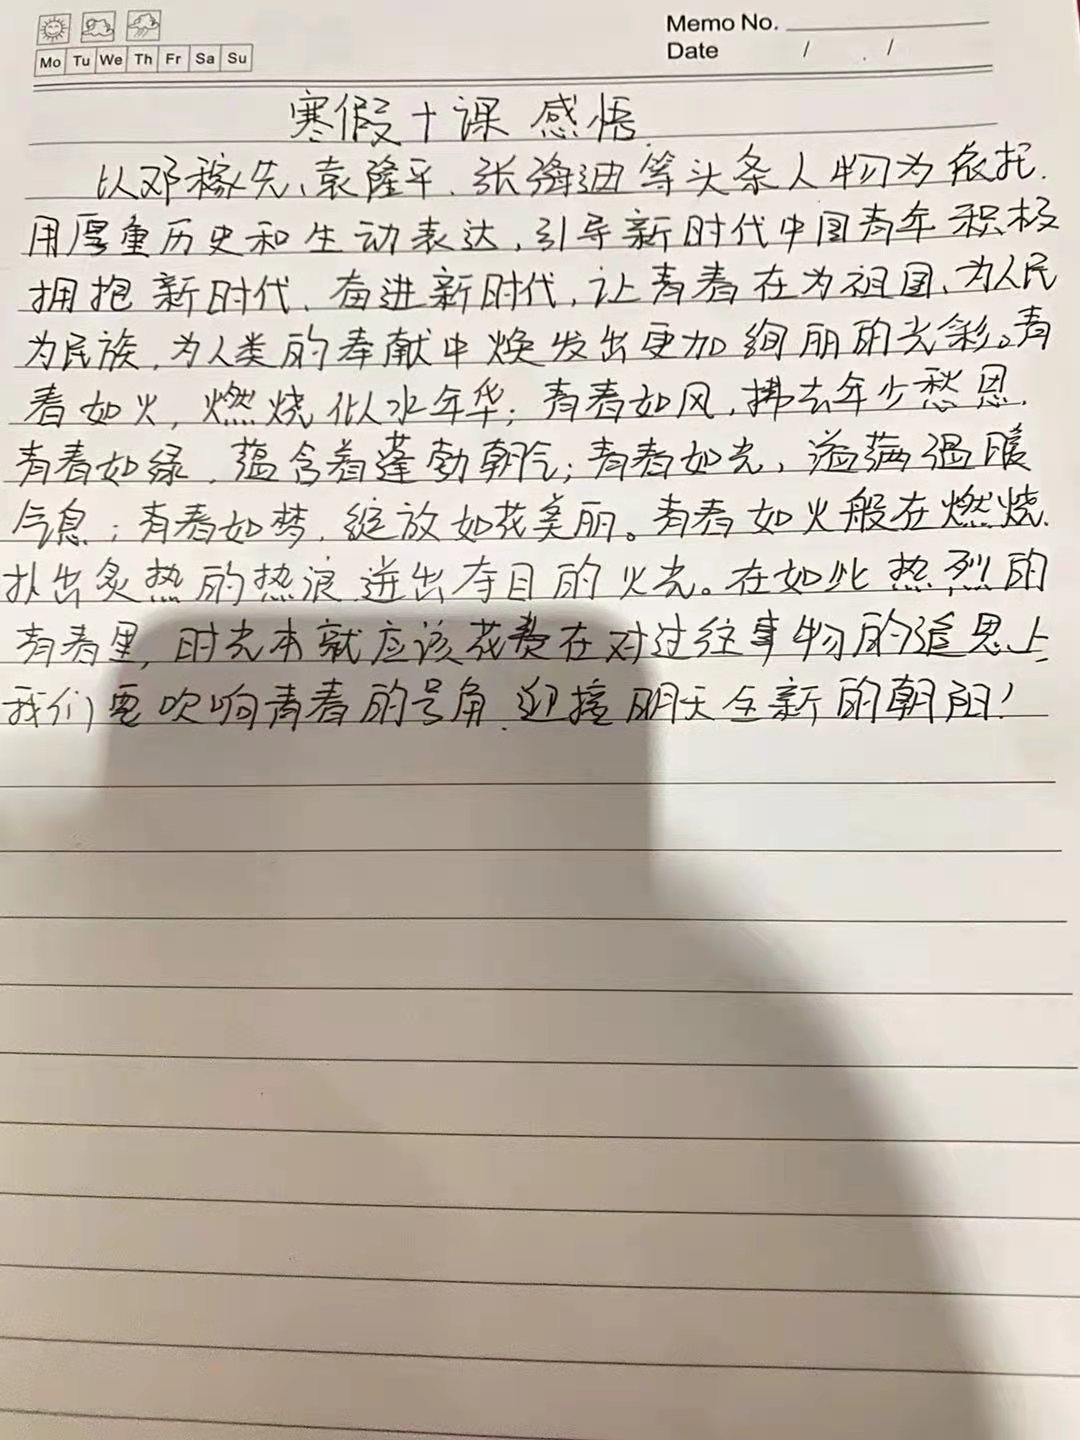 Memo No.
Mo Tu We Th Fr Sa Su
Date / /
寒假十课 感悟
以邓稼先、袁隆平、张海迪等头条人物为依托,
用厚重历史和生动表达,引导新时代中国青年积极
拥抱新时代、奋进新时代,让青春在为祖国、为人民
为民族,为人类的奉献中焕发出更加绚丽的光彩。青
春如火,燃烧似水年华;青春如风,拂去年少愁思,
青春如绿,蕴含着蓬勃朝气;青春如光,溢满温暖
气息;青春如梦,绽放如花美丽。青春如火般在燃烧,
扑出炙热的热浪,迸出夺目的火光。在如此热烈的
青春里,时光本就应该花费在对过往事物的追思上,
我们要吹响青春的号角,迎接明天全新的朝阳!